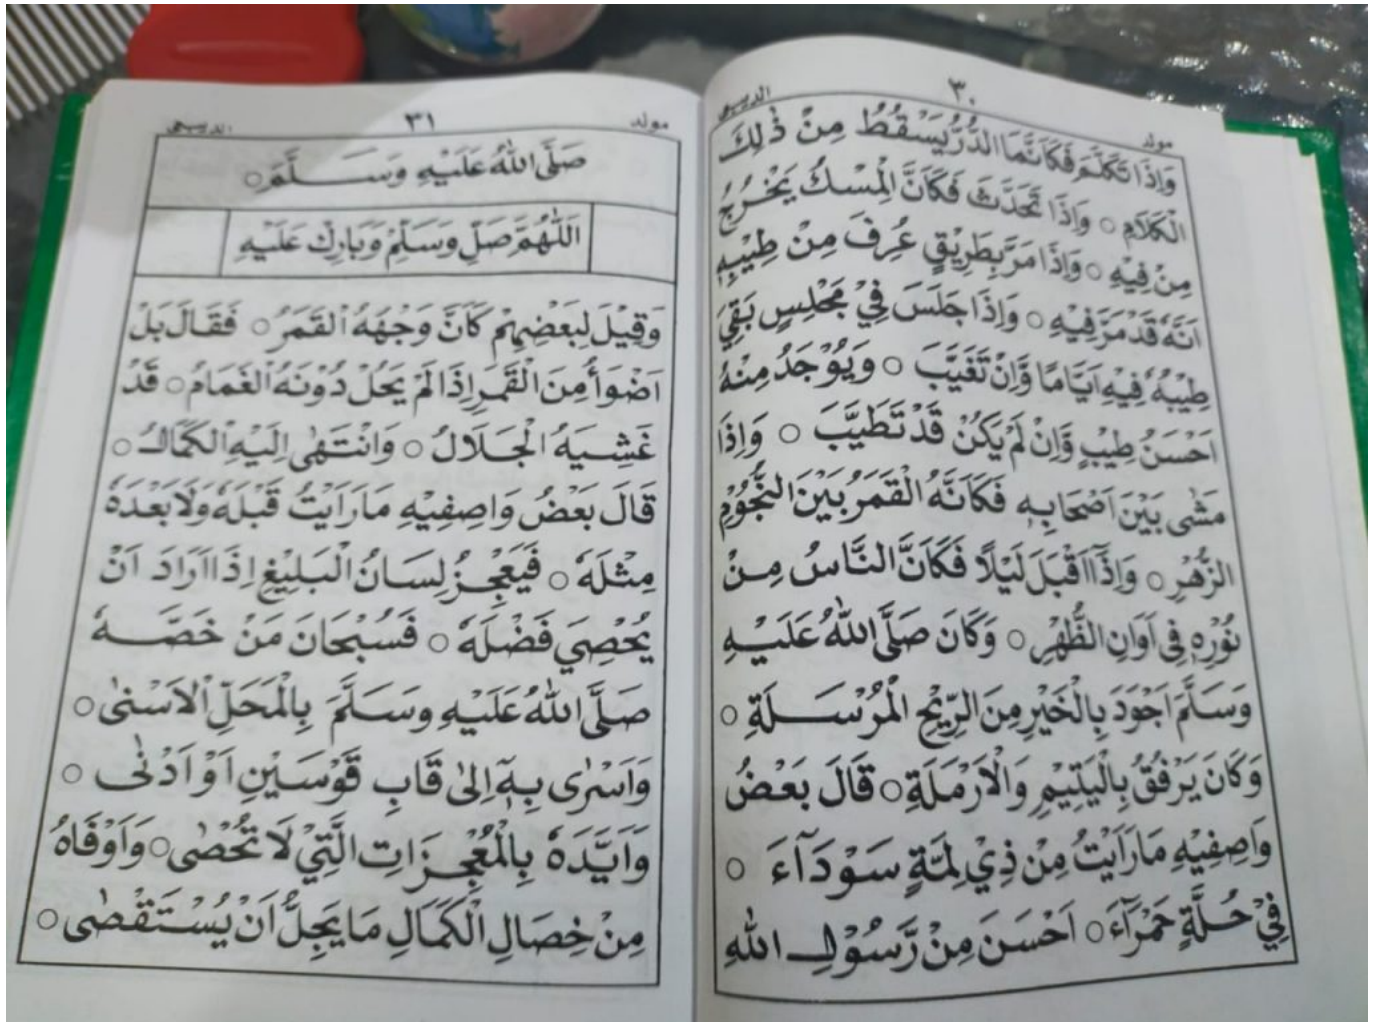 مولد
٣٠
الديبعي
وَاِذَا تَكَلَّمَ فَكَاَنَّمَا الدُّرُّ يَسْقُطُ مِنْ ذٰلِكَ
الْكَلَامِ ○ وَاِذَا تَحَدَّثَ فَكَاَنَّ الْمِسْكَ يَخْرُجُ
مِنْ فِيْهِ ○ وَاِذَا مَرَّ بِطَرِيْقٍ عُرِفَ مِنْ طِيْبِهٖ
اَنَّهٗ قَدْ مَرَّ فِيْهِ ○ وَاِذَا جَلَسَ فِيْ مَجْلِسٍ بَقِيَ
طِيْبُهٗ فِيْهِ اَيَّامًا وَّاِنْ تَغَيَّبَ ○ وَيُوْجَدُ مِنْهُ
اَحْسَنُ طِيْبٍ وَّاِنْ لَمْ يَكُنْ قَدْ تَطَيَّبَ ○ وَاِذَا
مَشٰى بَيْنَ اَصْحَابِهٖ فَكَاَنَّهُ الْقَمَرُ بَيْنَ النُّجُوْمِ
الزُّهْرِ ○ وَاِذَآ اَقْبَلَ لَيْلًا فَكَاَنَّ النَّاسُ مِنْ
نُوْرِهٖ فِى اَوَانِ الظُّهْرِ ○ وَكَانَ صَلَّى اللّٰهُ عَلَيْهِ
وَسَلَّمَ اَجْوَدَ بِالْخَيْرِ مِنَ الرِّيْحِ الْمُرْسَلَةِ ○
وَكَانَ يَرْفُقُ بِالْيَتِيْمِ وَالْاَرْمَلَةِ ○ قَالَ بَعْضُ
وَاصِفِيْهِ مَارَاَيْتُ مِنْ ذِيْ لِمَّةٍ سَوْدَآءَ ○
فِيْ حُلَّةٍ حَمْرَآءَ ○ اَحْسَنَ مِنْ رَّسُوْلِ اللّٰهِ
مولد
٣١
الديبعي
صَلَّى اللّٰهُ عَلَيْهِ وَسَلَّمَ ○
اَللّٰهُمَّ صَلِّ وَسَلِّمْ وَبَارِكْ عَلَيْهِ
وَقِيْلَ لِبَعْضِهِمْ كَاَنَّ وَجْهَهُ الْقَمَرُ ○ فَقَالَ بَلْ
اَضْوَأُ مِنَ الْقَمَرِ اِذَا لَمْ يَحُلْ دُوْنَهُ الْغَمَامُ ○ قَدْ
غَشِيَهُ الْجَلَالُ ○ وَانْتَهٰى اِلَيْهِ الْكَمَالُ ○
قَالَ بَعْضُ وَاصِفِيْهِ مَارَاَيْتُ قَبْلَهٗ وَلَا بَعْدَهٗ
مِثْلَهٗ ○ فَيَعْجِزُ لِسَانُ الْبَلِيْغِ اِذَا اَرَادَ اَنْ
يُحْصِيَ فَضْلَهٗ ○ فَسُبْحَانَ مَنْ خَصَّهٗ
صَلَّى اللّٰهُ عَلَيْهِ وَسَلَّمَ بِالْمَحَلِّ الْاَسْنٰى ○
وَاَسْرٰى بِهٖٓ اِلٰى قَابِ قَوْسَيْنِ اَوْ اَدْنٰى ○
وَاَيَّدَهٗ بِالْمُعْجِزَاتِ الَّتِيْ لَا تُحْصٰى ○ وَاَوْفَاهُ
مِنْ خِصَالِ الْكَمَالِ مَا يَجِلُّ اَنْ يُسْتَقْصٰى ○